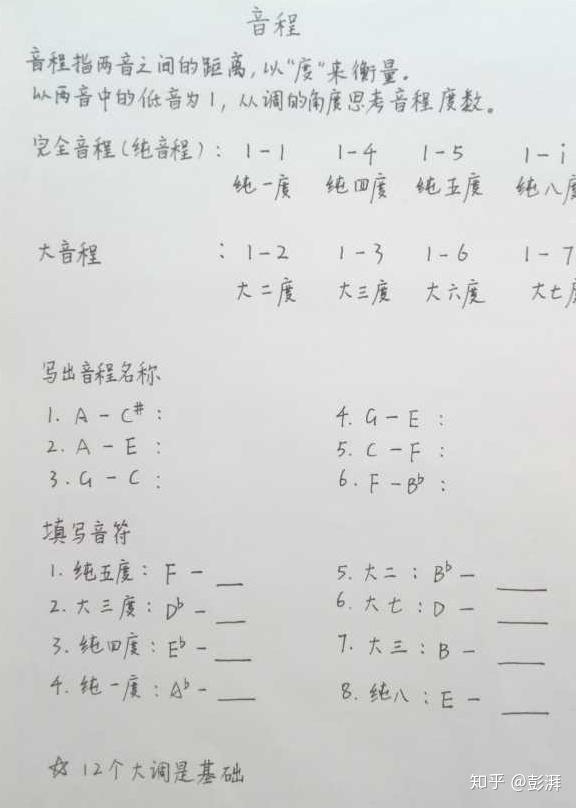 音程
音程指两音之间的距离,以“度”来衡量。
以两音中的低音为1,从调的角度思考音程度数。
完全音程(纯音程): 1-1 1-4 1-5 1-i
纯一度 纯四度 纯五度 纯八度
大音程 : 1-2 1-3 1-6 1-7
大二度 大三度 大六度 大七度
写出音程名称
1. A - C# : 4. G - E :
2. A - E : 5. C - F :
3. G - C : 6. F - B♭ :
填写音符
1. 纯五度: F - __ 5. 大二: B♭ - ___
2. 大三度: D♭ - __ 6. 大七: D - ___
3. 纯四度: E♭ - ___ 7. 大三: B - ___
4. 纯一度: A♭ - ___ 8. 纯八: E - ___
☆ 12个大调是基础
知乎 @彭湃